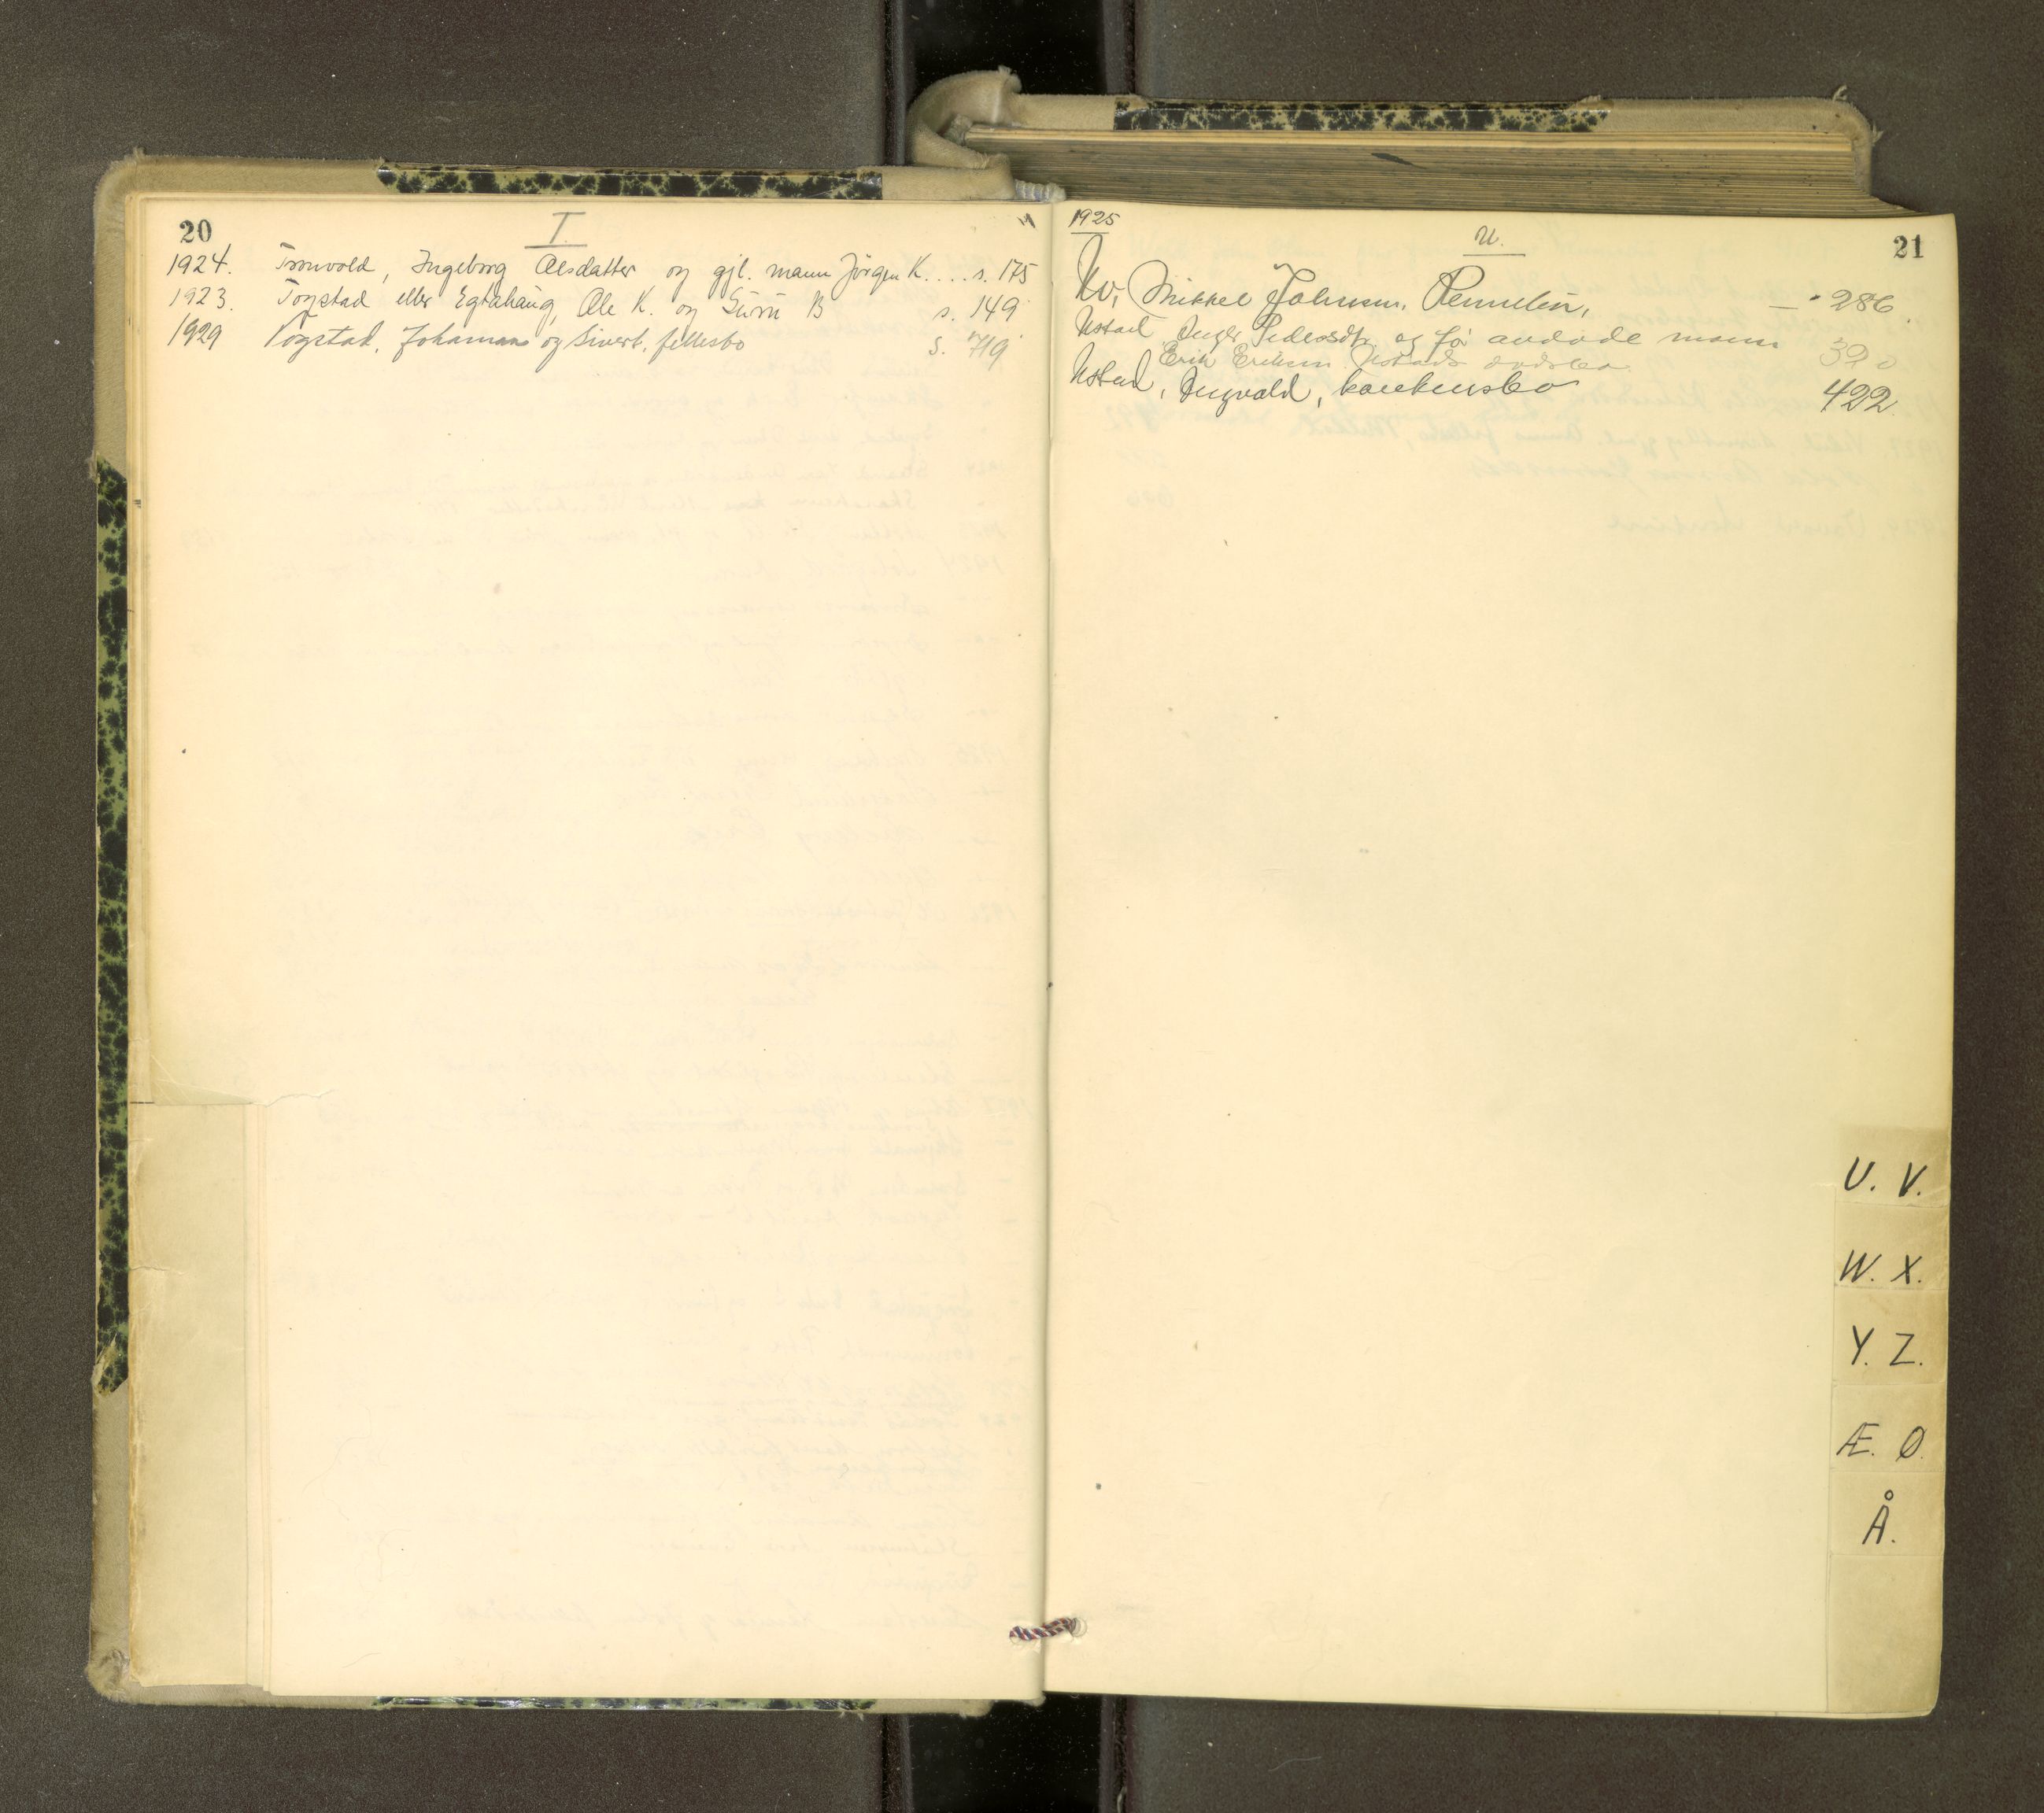 20
T.
1924. Tronvold, Ingeborg Olsdatter og gjl. mann Jörgen K.... s. 175
1923. Togstad eller Egtahaug, Ole K. og Guru B s. 149
1929 Togstad, Johannes og Sivert, fellesbo s. 419
1925
U.
21
Uv, Mikkel Johnsen, Rennebu, — 286.
Ustad Inger Pedersdtr. og før avdøde mann
Erik Eriksen Ustads dødsbo 390
Ustad, Ingvald, konkursbo 422.
U. V.
W. X.
Y. Z.
Æ. Ø.
Å.